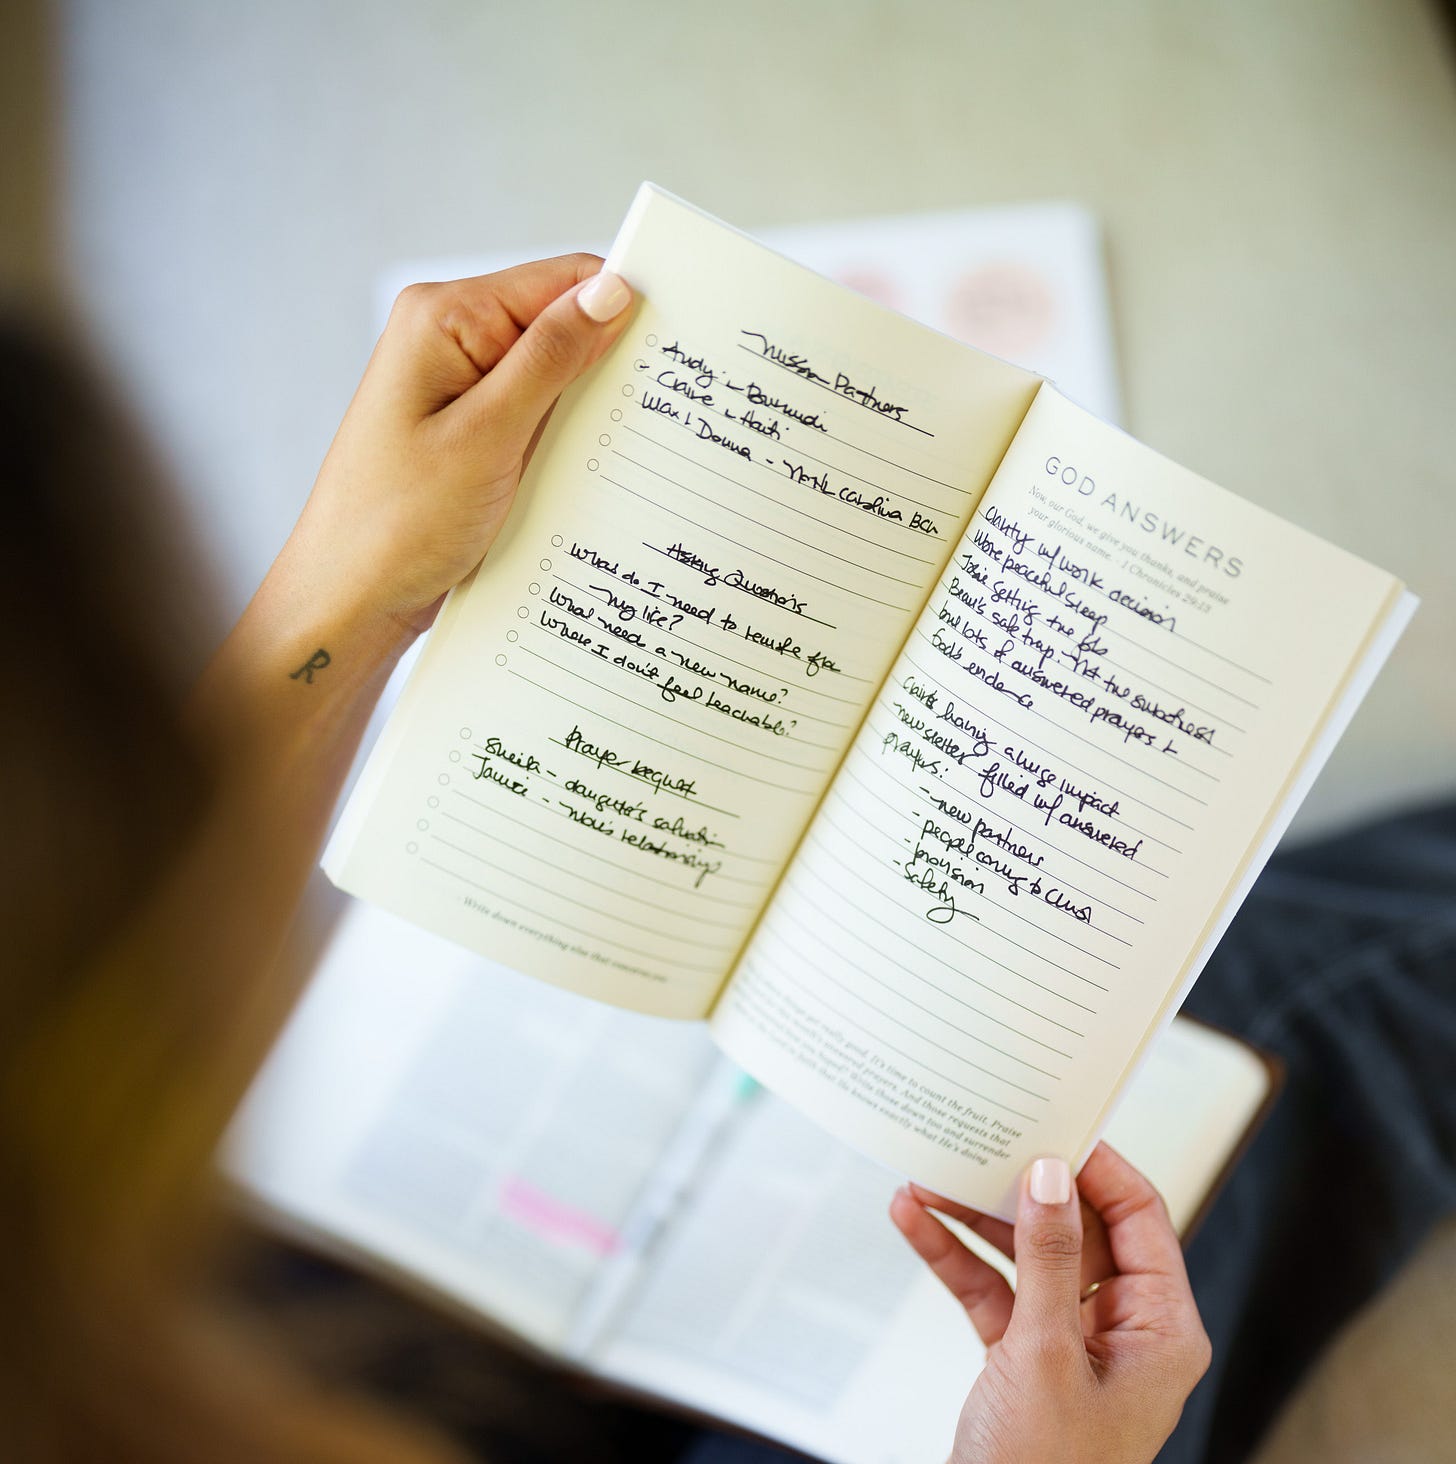 Mission Partners
Andy - Burundi
Claire - Haiti
Max & Donna - North Carolina BCM
Asking Questions
What do I need to for
my life?
What need a new name?
Where I don't feel teachable?
Prayer Request
Sheila - daughter's salvation
Jamie - relationship
- Write down everything else that concerns you
GOD ANSWERS
Now, our God, we give you thanks, and praise
your glorious name. - 1 Chronicles 29:13
Clarity w/ work decision
More peaceful sleep
Josie getting the job
Beau's safe trap. Not the smoothest
but lots of answered prayers +
God's evidence
Claire's having a huge impact
newsletter filled w/ answered
prayers:
- new partners
- people coming to Christ
- provision
- Safety
things get really good. It's time to count the fruit. Praise
last month's answered prayers. And those requests that
you hoped? Write those down too and surrender
to the Lord in faith that He knows exactly what He's doing.
R